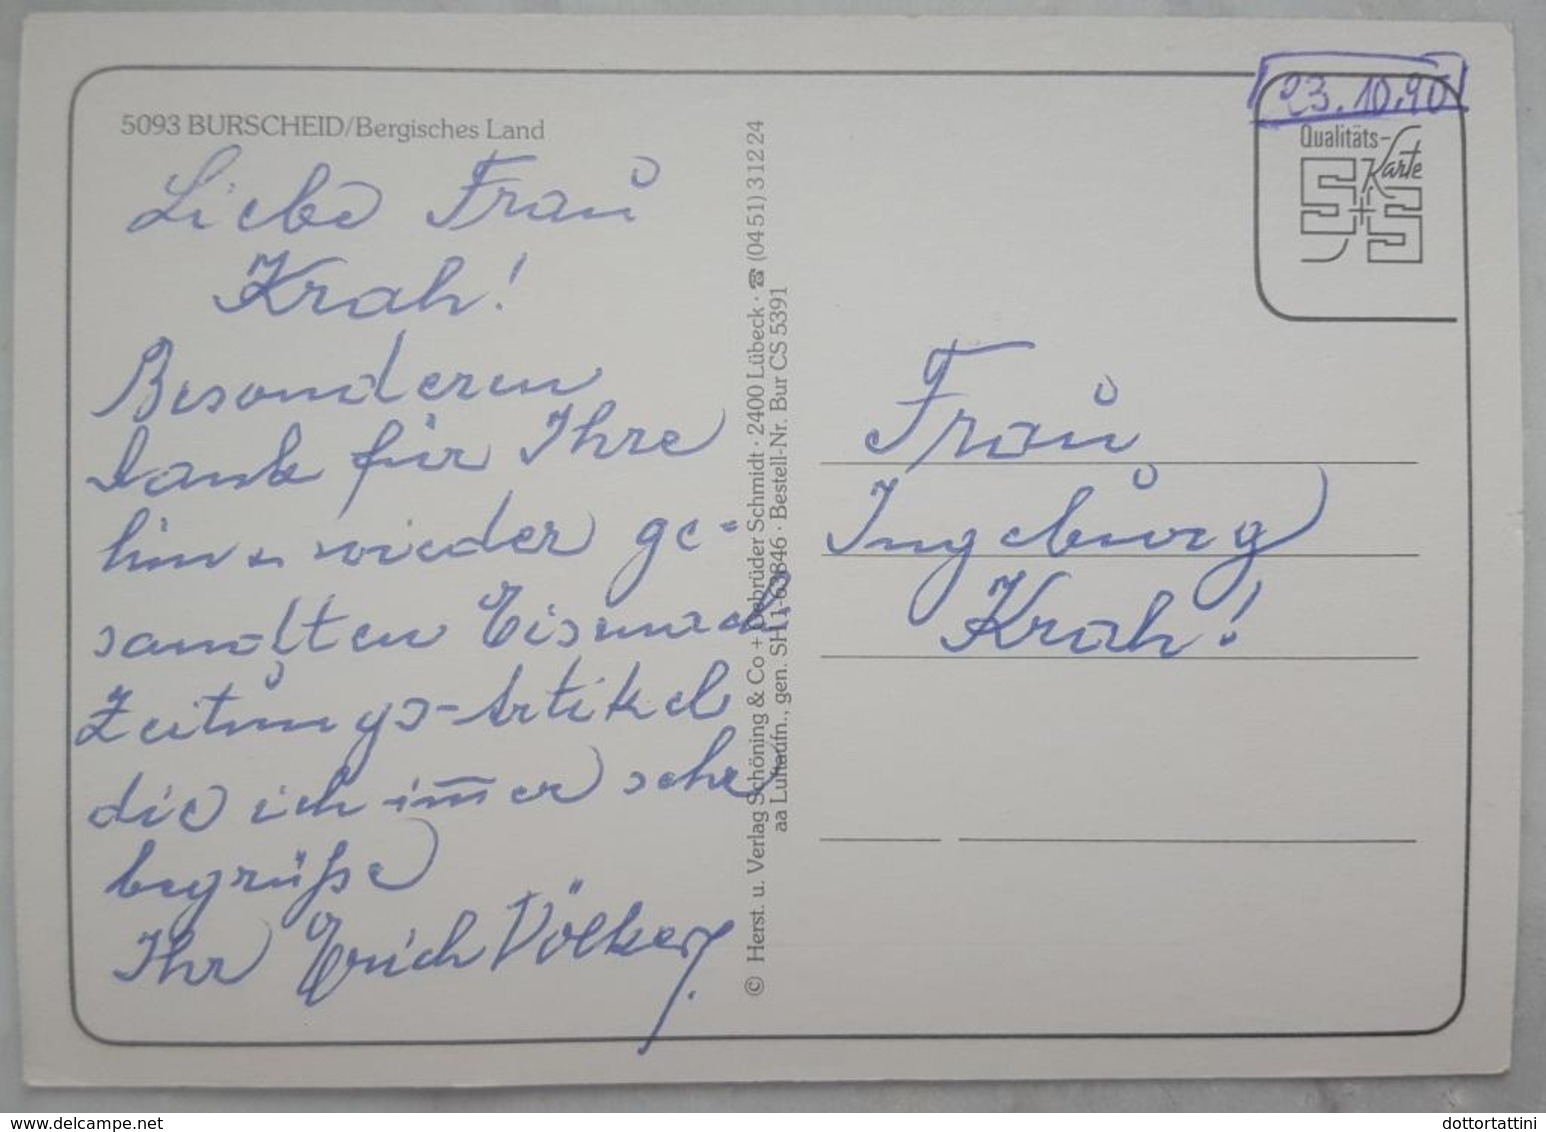 5093 BURSCHEID/Bergisches Land
Liebe Frau
Krah!
Besonderen
Dank für Ihre
hin wieder ge-
sandten
Zeitungs-Artikel
die ich immer sehr
begrüße
Ihr Erich Völker
© Herst. u. Verlag Schöning & Co + Gebrüder Schmidt · 2400 Lübeck · ☎ (04 51) 3 12 24
aa Luftaufn., gen. SH 1-63846 · Bestell-Nr. Bur CS 5391
23.10.90
Qualitäts-
Karte
S+S
Frau
Ingeburg
Krah!
www.delcampe.net
dottortattini